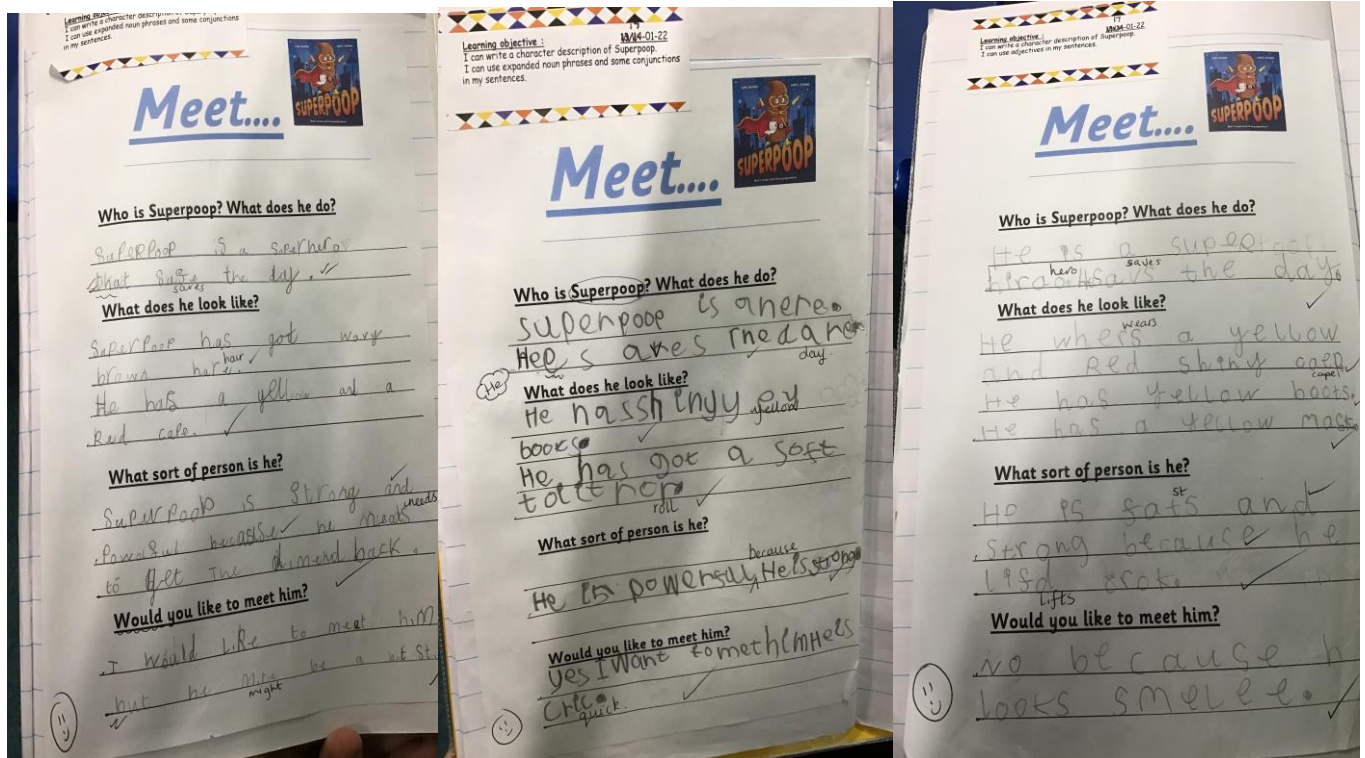 Learning objective :
I can write a character description of Superpoop.
I can use expanded noun phrases and some conjunctions
in my sentences.
SUPERPOOP
Meet....
Who is Superpoop? What does he do?
SuPerPoop is a superhero
that the day.
saves
What does he look like?
SuPerPoop has got wavy
brown hare.
hair
He has a yellow and a
Red cape.
What sort of person is he?
SuPerPoop is Strong and
Powerful because he
needs
to get the dimend back.
Would you like to meet him?
I would Like to meet him
but he be a bit
might
17
-01-22
Learning objective :
I can write a character description of Superpoop.
I can use expanded noun phrases and some conjunctions
in my sentences.
SUPERPOOP
Meet....
Who is Superpoop? What does he do?
superpoop is a
He
day
What does he look like?
He has shinyy
yellow
books
He has got a soft
roll
What sort of person is he?
because
He is powersal He is strong
Would you like to meet him?
yes I want to met him He is
Cric.
quick.
17
-01-22
Learning objective :
I can write a character description of Superpoop.
I can use adjectives in my sentences.
SUPERPOOP
Meet....
Who is Superpoop? What does he do?
He is a super
hero saves
the day.
What does he look like?
He whers a yellow
wears
and Red shiny
cape
He has yellow boots.
He has a yellow mask.
What sort of person is he?
He is fats and
st
strong because he
lifts
Would you like to meet him?
No because h
looks smelee.